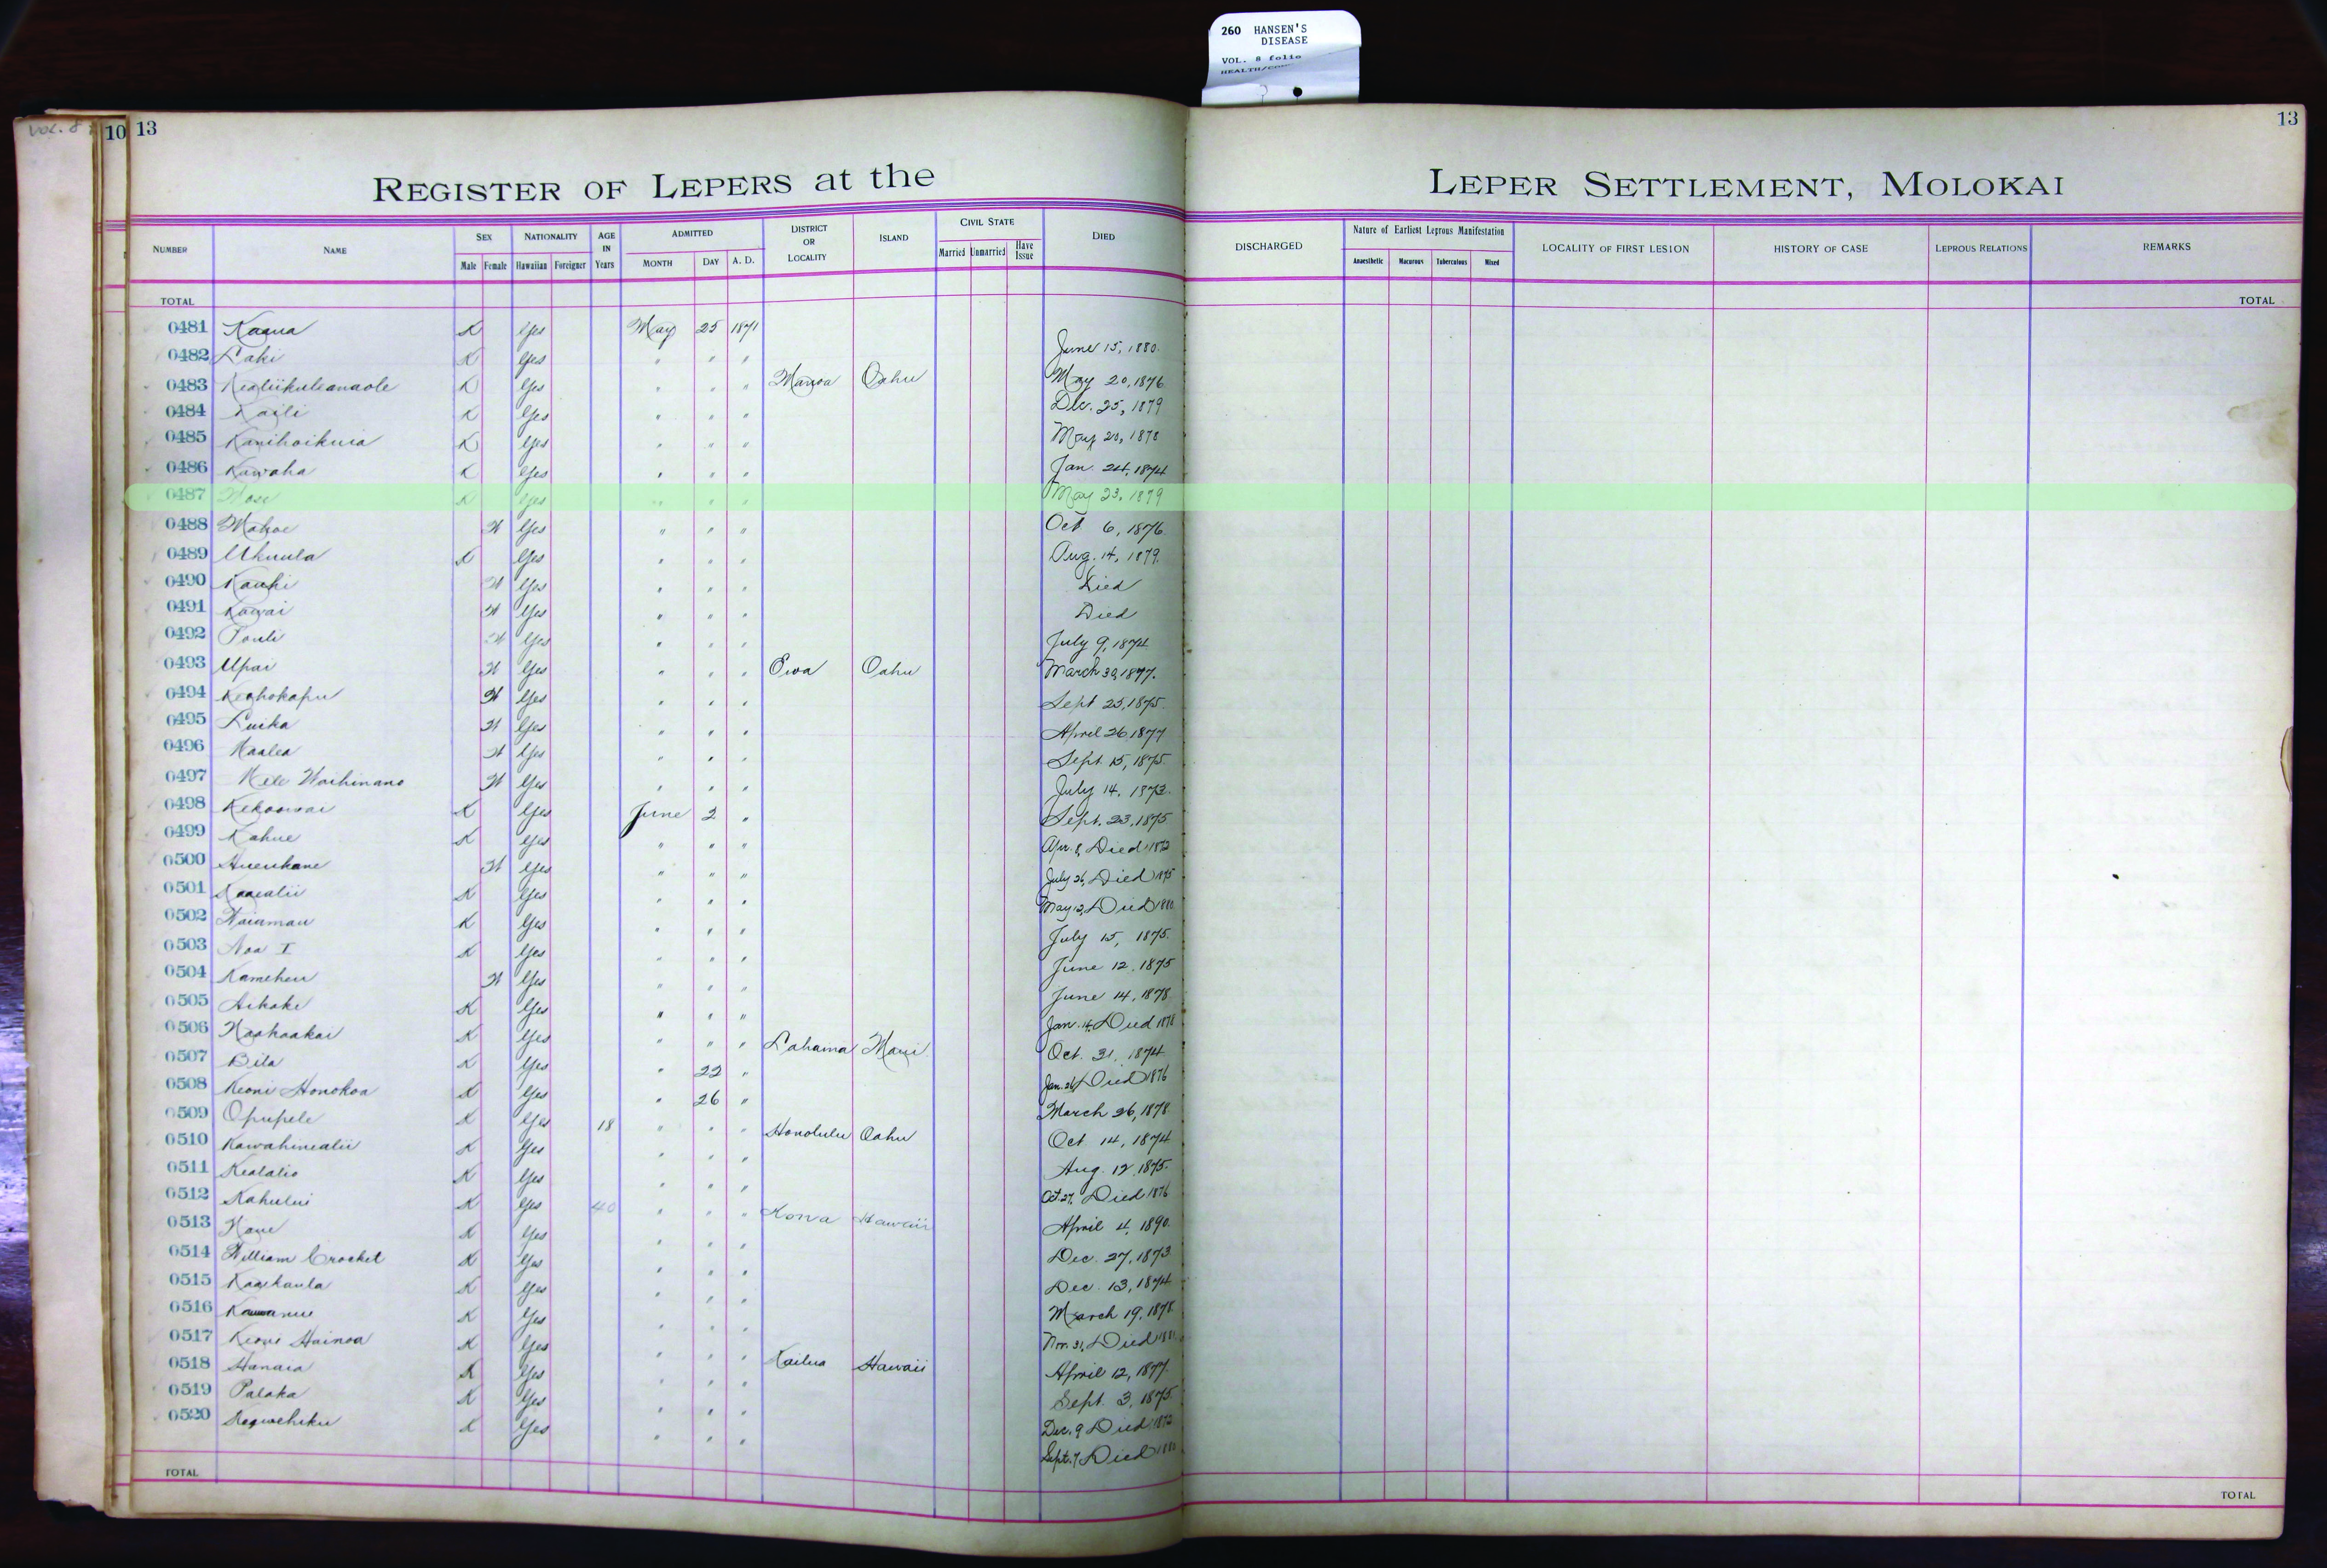 260 HANSEN'S
DISEASE
VOL. 8 folio
VOL. 8
10 13
13
REGISTER OF LEPERS at the LEPER SETTLEMENT, MOLOKAI
NUMBER NAME SEX NATIONALITY AGE IN Years ADMITTED DISTRICT OR LOCALITY ISLAND CIVIL STATE DIED DISCHARGED Nature of Earliest Leprous Manifestation LOCALITY OF FIRST LESION HISTORY OF CASE LEPROUS RELATIONS REMARKS
Male Female Hawaiian Foreigner MONTH DAY A. D. Married Unmarried Have Issue Anaesthetic Macurous Tuberculous Mixed
TOTAL TOTAL
0481 Kaaua K Yes May 25 1871
0482 Laki K Yes " " " June 15, 1880.
0483 Kealiikuleanaole K Yes " " " Manoa Oahu May 20, 1876
0484 Kaili K Yes " " " Dec. 25, 1879
0485 Kanihoikuia K Yes " " " May 20, 1878
0486 Kawaha K Yes " " " Jan. 24, 1874
0487 K Yes " " " May 23, 1879
0488 Mahoe W Yes " " " Oct 6, 1876.
0489 Ukuula K Yes " " " Aug. 14, 1879.
0490 Kauhi W Yes " " " Died
0491 Kawai W Yes " " " Died
0492 Pouli W Yes " " " July 9, 1874
0493 Upai W Yes " " " Ewa Oahu March 30, 1877.
0494 Keahokapu W Yes " " " Sept 25, 1875.
0495 Luika W Yes " " " April 26 1877
0496 Kaalea W Yes " " " Sept. 15, 1875.
0497 Mele Waihinano W Yes " " " July 14, 1873.
0498 Kekoowai K Yes June 2 " Sept. 23, 1875
0499 Kahue K Yes " " " Apr. 8, Died 1872
0500 Hueukane W Yes " " " July 26, Died 1875
0501 Kaaealii K Yes " " " May 12, Died 1880
0502 Waiamau K Yes " " " July 15, 1875.
0503 Noa I K Yes " " " June 12, 1875
0504 Kameheu W Yes " " " June 14, 1878
0505 Aikake K Yes " " " Jan. 14, Died 1878
0506 Naahaakai K Yes " " " Lahaina Maui Oct. 31, 1874
0507 Bila K Yes " 22 " Jan. 26, Died 1876
0508 Keoni Honokoa K Yes " 26 " March 26, 1878.
0509 Opupele K Yes 18 " " " Honolulu Oahu Oct 14, 1874
0510 Kawahinealii K Yes " " " Aug. 12, 1875.
0511 Kealalio K Yes " " " Oct. 27, Died 1876
0512 Kahului K Yes 40 " " " Kona Hawaii April 4, 1890.
0513 Kane K Yes " " " Dec. 27, 1873.
0514 William Crocket K Yes " " " Dec. 13, 1874
0515 Kaaikaula K Yes " " " March 19, 1878.
0516 K Yes " " " Nov. 31, Died
0517 Keoni Hainoa K Yes " " " Kailua Hawaii April 12, 1877.
0518 Hanaia K Yes " " " Sept. 3, 1875.
0519 Palaka K Yes " " " Dec. 9 Died 1872
0520 K Yes " " " Sept. 7, Died
TOTAL TOTAL